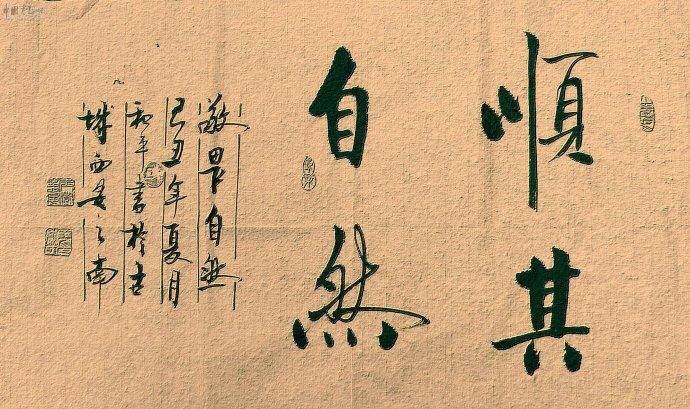 順其
自然
敬畏自然
己丑年夏月
和平書於古
城西安之南